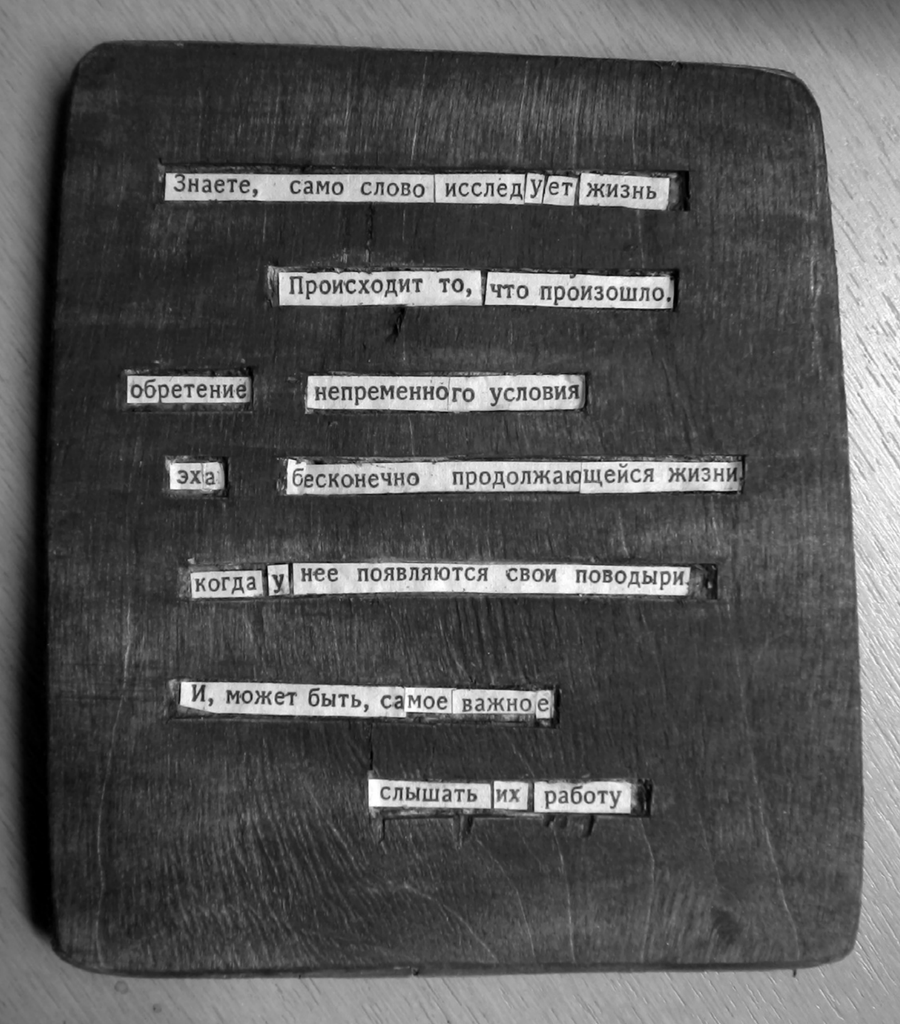 Знаете, само слово исследует жизнь
Происходит то, что произошло.
обретение непременного условия
эха бесконечно продолжающейся жизни.
когда у нее появляются свои поводыри.
И, может быть, самое важное
слышать их работу